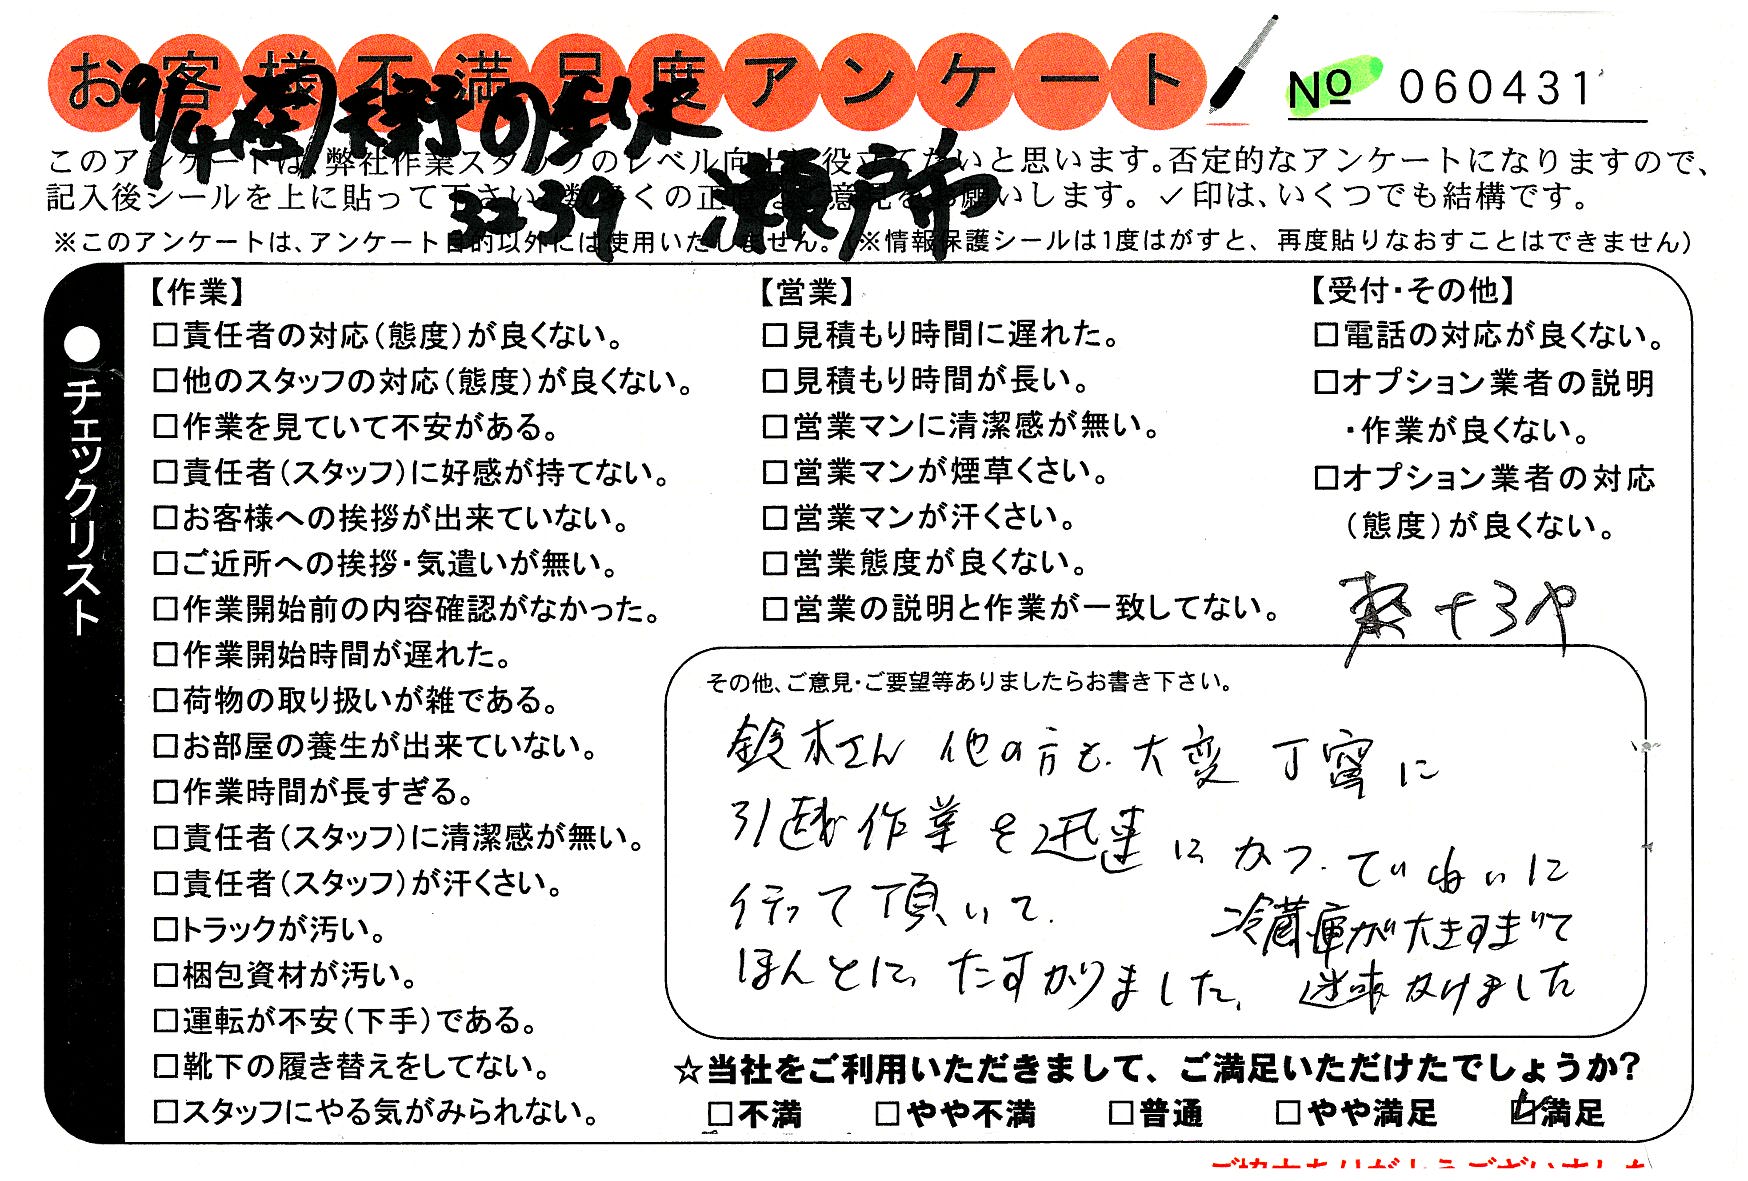 お客様不満足度アンケート
No 060431
このアンケートは、弊社作業スタッフのレベル向上に役立てたいと思います。否定的なアンケートになりますので、
記入後シールを上に貼って下さい。数多くの正直なご意見をお願いします。✓印は、いくつでも結構です。
※このアンケートは、アンケート目的以外には使用いたしません。(※情報保護シールは1度はがすと、再度貼りなおすことはできません)
9/4
3239 瀬戸市
●チェックリスト
【作業】
□責任者の対応(態度)が良くない。
□他のスタッフの対応(態度)が良くない。
□作業を見ていて不安がある。
□責任者(スタッフ)に好感が持てない。
□お客様への挨拶が出来ていない。
□ご近所への挨拶・気遣いが無い。
□作業開始前の内容確認がなかった。
□作業開始時間が遅れた。
□荷物の取り扱いが雑である。
□お部屋の養生が出来ていない。
□作業時間が長すぎる。
□責任者(スタッフ)に清潔感が無い。
□責任者(スタッフ)が汗くさい。
□トラックが汚い。
□梱包資材が汚い。
□運転が不安(下手)である。
□靴下の履き替えをしてない。
□スタッフにやる気がみられない。
【営業】
□見積もり時間に遅れた。
□見積もり時間が長い。
□営業マンに清潔感が無い。
□営業マンが煙草くさい。
□営業マンが汗くさい。
□営業態度が良くない。
□営業の説明と作業が一致してない。
【受付・その他】
□電話の対応が良くない。
□オプション業者の説明
・作業が良くない。
□オプション業者の対応
(態度)が良くない。
その他、ご意見・ご要望等ありましたらお書き下さい。
鈴木さん 他の方も、大変 丁寧に
引越作業を迅速にかつ、ていねいに
行って頂いて、
ほんとに、たすかりました。
冷蔵庫が大きすぎて
迷惑かけました
☆当社をご利用いただきまして、ご満足いただけたでしょうか?
□不満 □やや不満 □普通 □やや満足 ☑満足
ご協力ありがとうございました